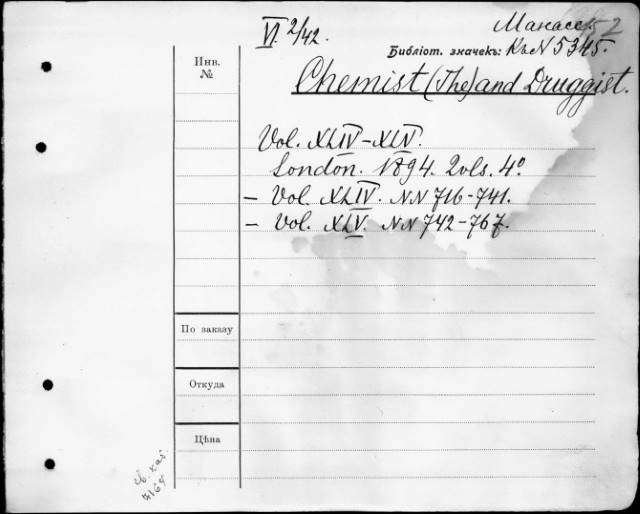 VI 2/42.
Манасс. 52
Библіот. значекъ: Къ N 5345.
Инв.
№
Chemist (The) and Druggist.
Vol. XLIV–XLV.
London. 1894. 2 vls. 4°
– Vol. XLIV. NN 716–741.
– Vol. XLV. NN 742–767.
По заказу
Откуда
Цѣна
4164